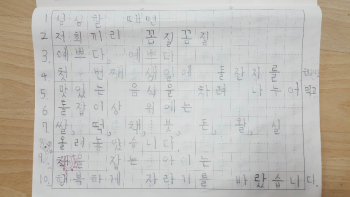 1. 심심할 때면
2. 저희끼리 꼼질꼼질
3. 예쁘다, 예쁘다.
4. 첫 번째 생일에 돌잔치를
5. 맛있는 음식을 차려 나누어 먹고
6. 돌잡이상 위에는
7. 쌀, 떡, 책, 붓, 돈, 활, 실
8. 올려놓았습니다.
9. 책을 잡는 아이는
10. 행복하게 자라기를 바랐습니다.